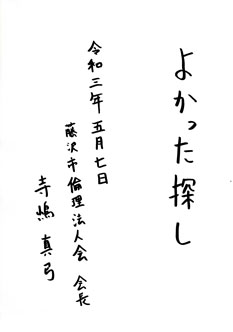 よかった探し
令和三年五月七日
藤沢市倫理法人会 会長
寺嶋真弓